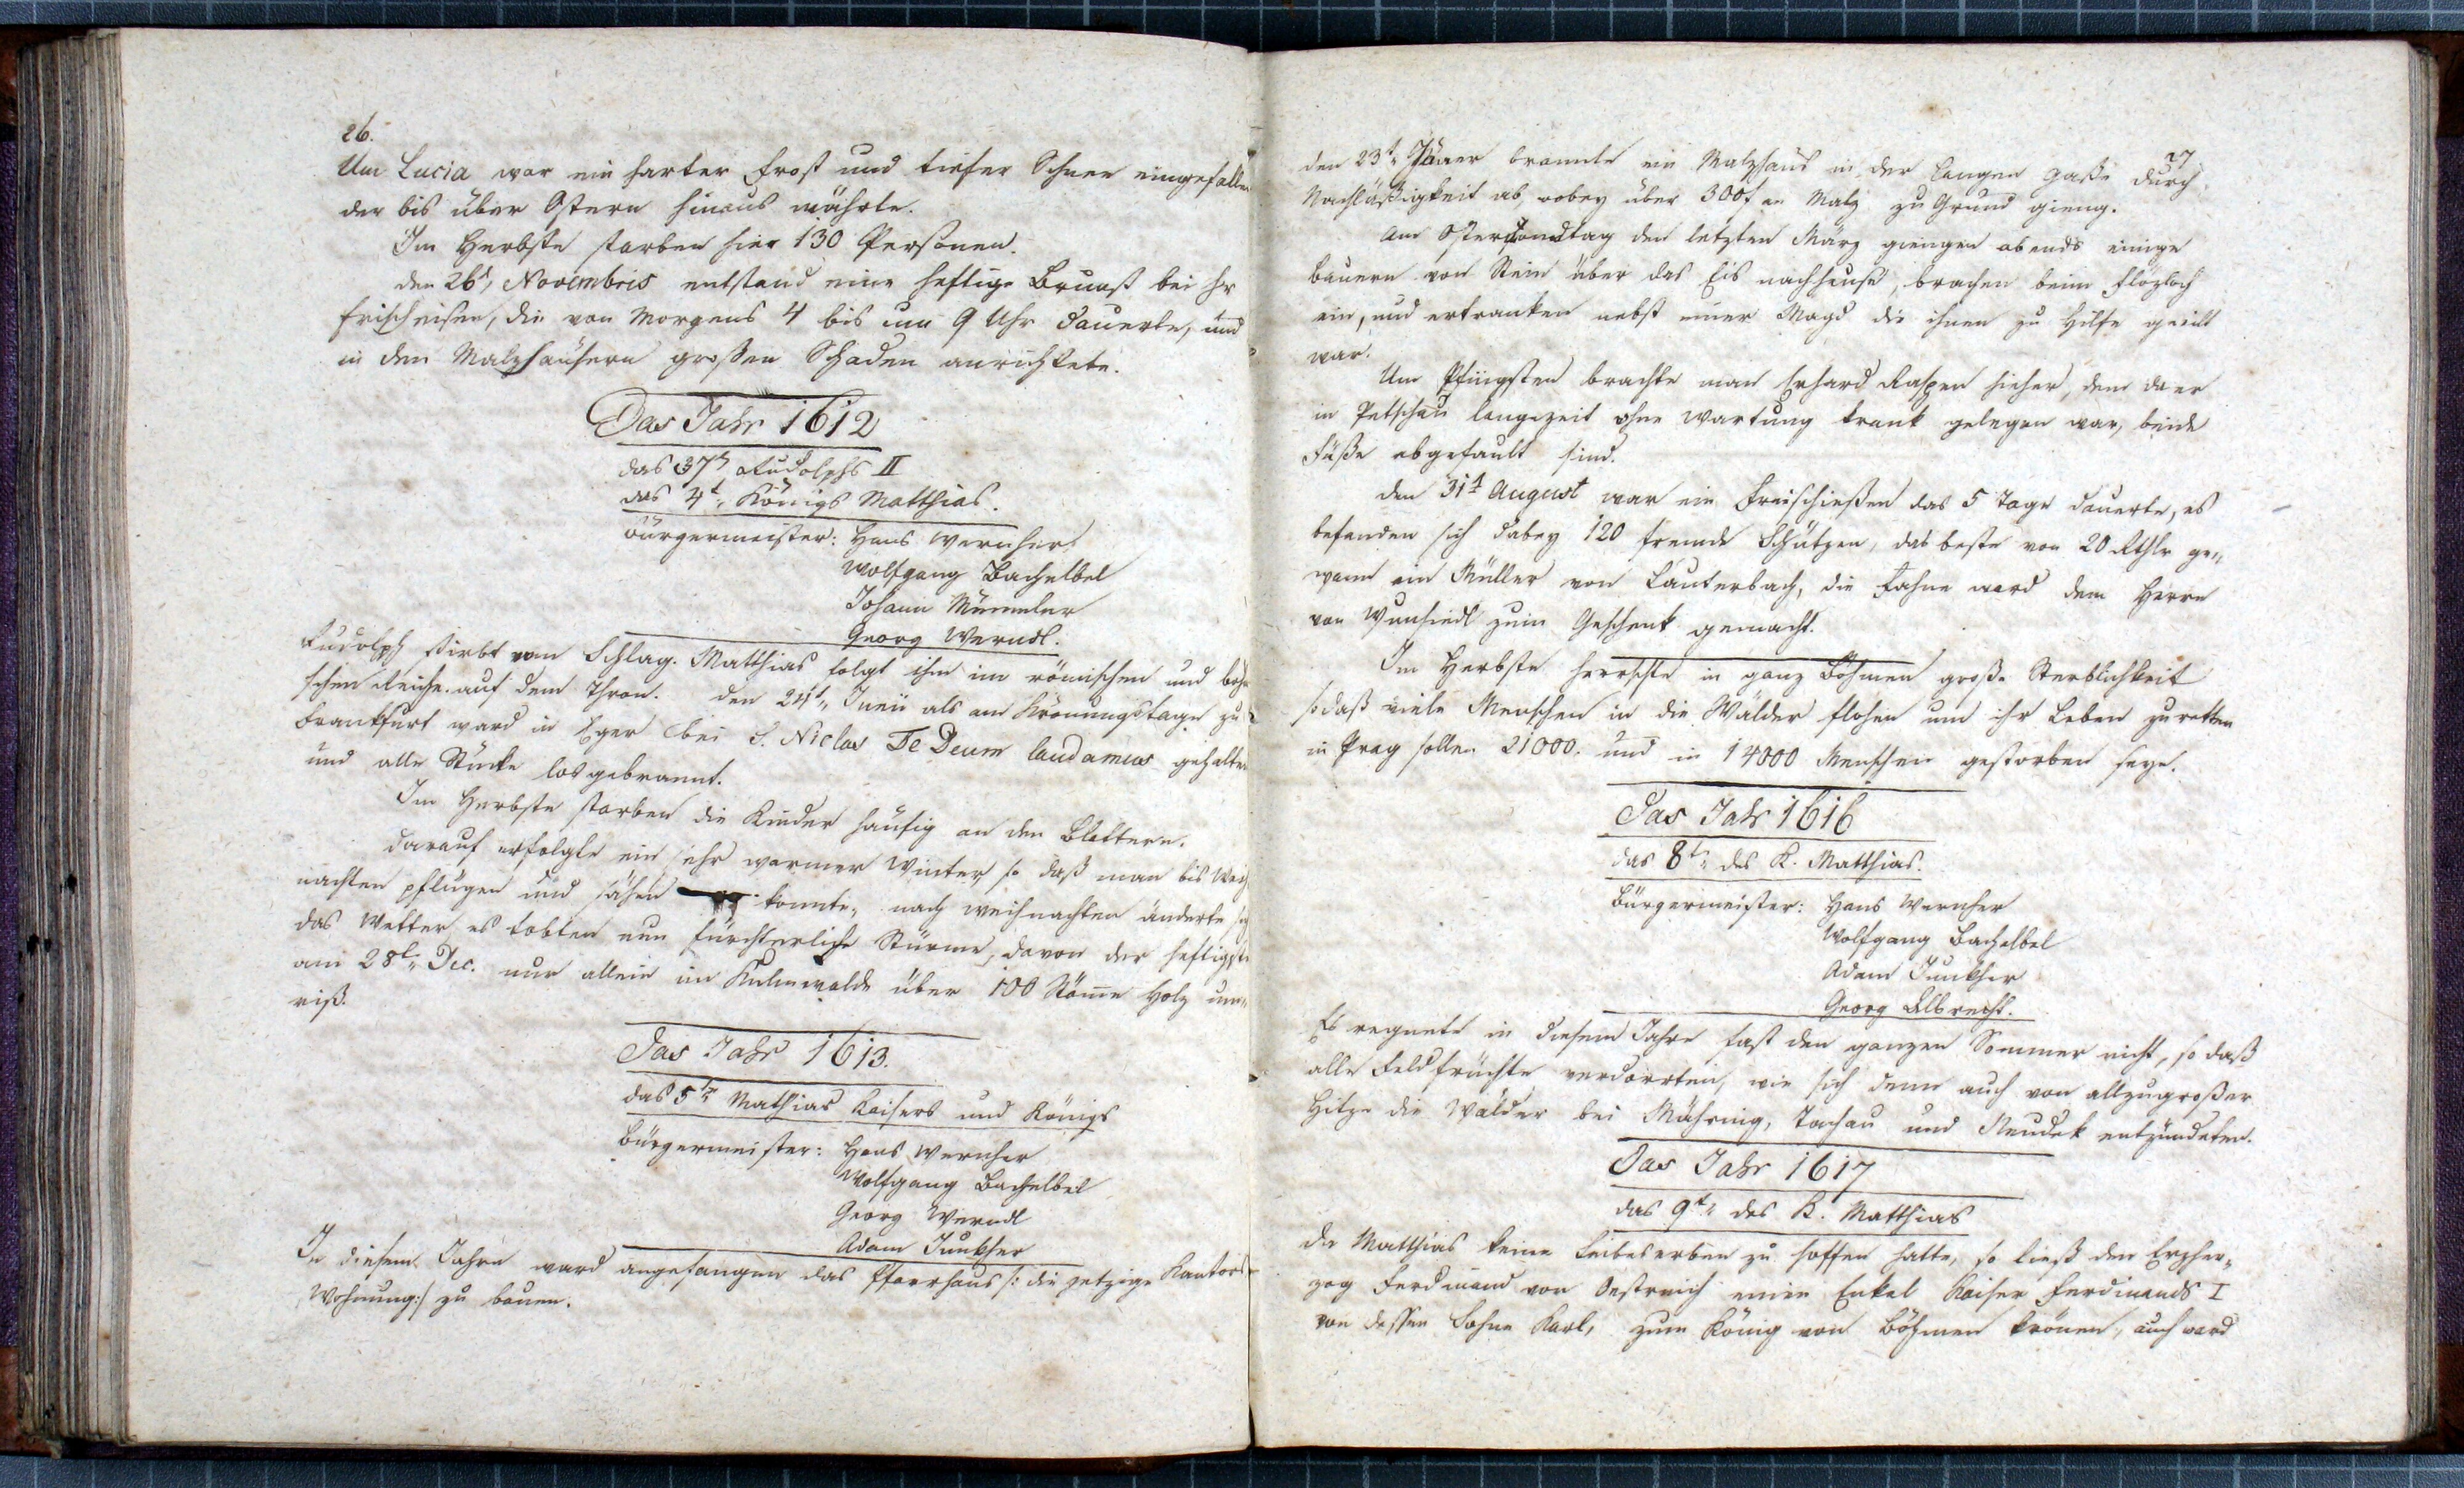 26.
Um Lucia war ein harter Frost und tiefer Schnee eingefallen
der bis über Ostern hinaus währte.
Im Herbste starben hier 130 Personen.
den 26t, Novembris entstand eine heftige Brunst bei Hr
Frischeisen, die von Morgens 4 bis um 9 Uhr dauerte, und
in den Malzhäusern großen Schaden anrichtete.
Das Jahr 1612
das 37t Rudolphs II
das 4t, Königs Matthias.
Bürgermeister: Hans Wernher
Wolfgang Bachelbel
Johann Mümmler
Georg Werndl.
Rudolph stirbt vom Schlag. Matthias folgt ihm im römischen und böhm
schen Reiche auf dem Thron. den 24t, Junii als am Krönungstage zu
Frankfurt ward in Eger bei S. Niclas Te Deum laudamus gehalten
und alle Stücke losgebrannt.
Im Herbste starben die Kinder häufig an den Blattern.
darauf erfolgte ein sehr warmer Winter, so daß man bis Weih
nachten pflügen und sähen konnte, nach Weihnachten änderte sich
das Wetter es tobten nun fürchterliche Stürme, davon der heftigste
am 28t, Dec. nur allein im Kulmwalde über 100 Stäme Holz um„
riß.
Das Jahr 1613.
das 5te Mathias Kaisers und Königs
Bürgermeister: Hans Wernher
Wolfgang Bachelbel
Georg Werndl
Adam Junkher
In diesem Jahre ward angefangen das Pfarrhaus /: die jetzige Kantors
Wohnung :/ zu bauen.
27
den 23t, Jäner brannte ein Malzhaus in der langen Gaße durch
Nachläßigkeit ab, wobey über 300f an Malz zu Grund gieng.
Am Ostersonntag den letzten März giengen abends einige
Bauern von Stein über das Eis nachhause, brachen beim Flözloch
ein, und ertranken nebst einer Magd die ihnen zu Hilfe geeilt
war.
Um Pfingsten brachte man Erhard Raspen hieher, dem da er
in Petschau langezeit ohne Wartung krank gelegen war, beide
Füße abgefault sind.
den 31t August war ein Freischießen das 5 Tage dauerte, es
befanden sich dabey 120 fremde Schützen, das beste von 20 Rthlr ge„
wann ein Müller von Lauterbach, die Fahne ward dem Herrn
von Wunsiedl zum Geschenk gemacht.
Im Herbste herrschte in ganz Böhmen große Sterblichkeit
sodaß viele Menschen in die Wälder flohen um ihr Leben zu retten
in Prag sollen 21000. und in 14000 Menschen gestorben seye.
Das Jahr 1616
das 8te des K. Matthias.
Bürgermeister: Hans Wernher
Wolfgang Bachelbel
Adam Junkher
Georg Albrecht.
Es regnete in diesem Jahre fast den ganzen Sommer nicht, so daß
alle Feldfrüchte verdorrten, wie sich denn auch von allzugroßer
Hitze die Wälder bei Mähring, Tachau und Neudek entzündeten.
Das Jahr 1617
das 9te des K. Matthias
Da Matthias keine Leibeserben zu hoffen hatte, so ließ den Erzher„
zog Ferdinand von Oestreich einen Enkel Kaiser Ferdinands I
von dessen Sohne Karl, zum König von Böhmen krönen, auch ward